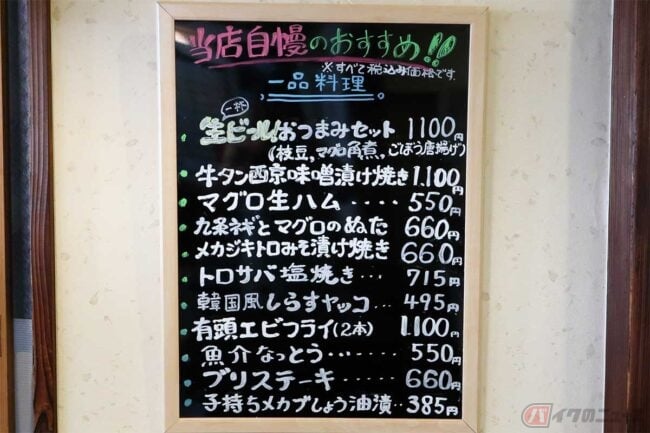 当店自慢のおすすめ!!
※すべて税込み価格です。
一品料理
一杯
生ビール!おつまみセット 1100円
(枝豆,マグロ角煮,ごぼう唐揚げ)
牛タン西京味噌漬け焼き 1,100円
マグロ生ハム‥‥ 550円
九条ネギとマグロのぬた 660円
メカジキトロみそ漬け焼き 660円
トロサバ塩焼き… 715円
韓国風しらすヤッコ… 495円
有頭エビフライ(2本) 1,100円
魚介なっとう……… 550円
ブリステーキ‥‥ 660円
子持ちメカブしょう油漬‥ 385円
バイクのニュース